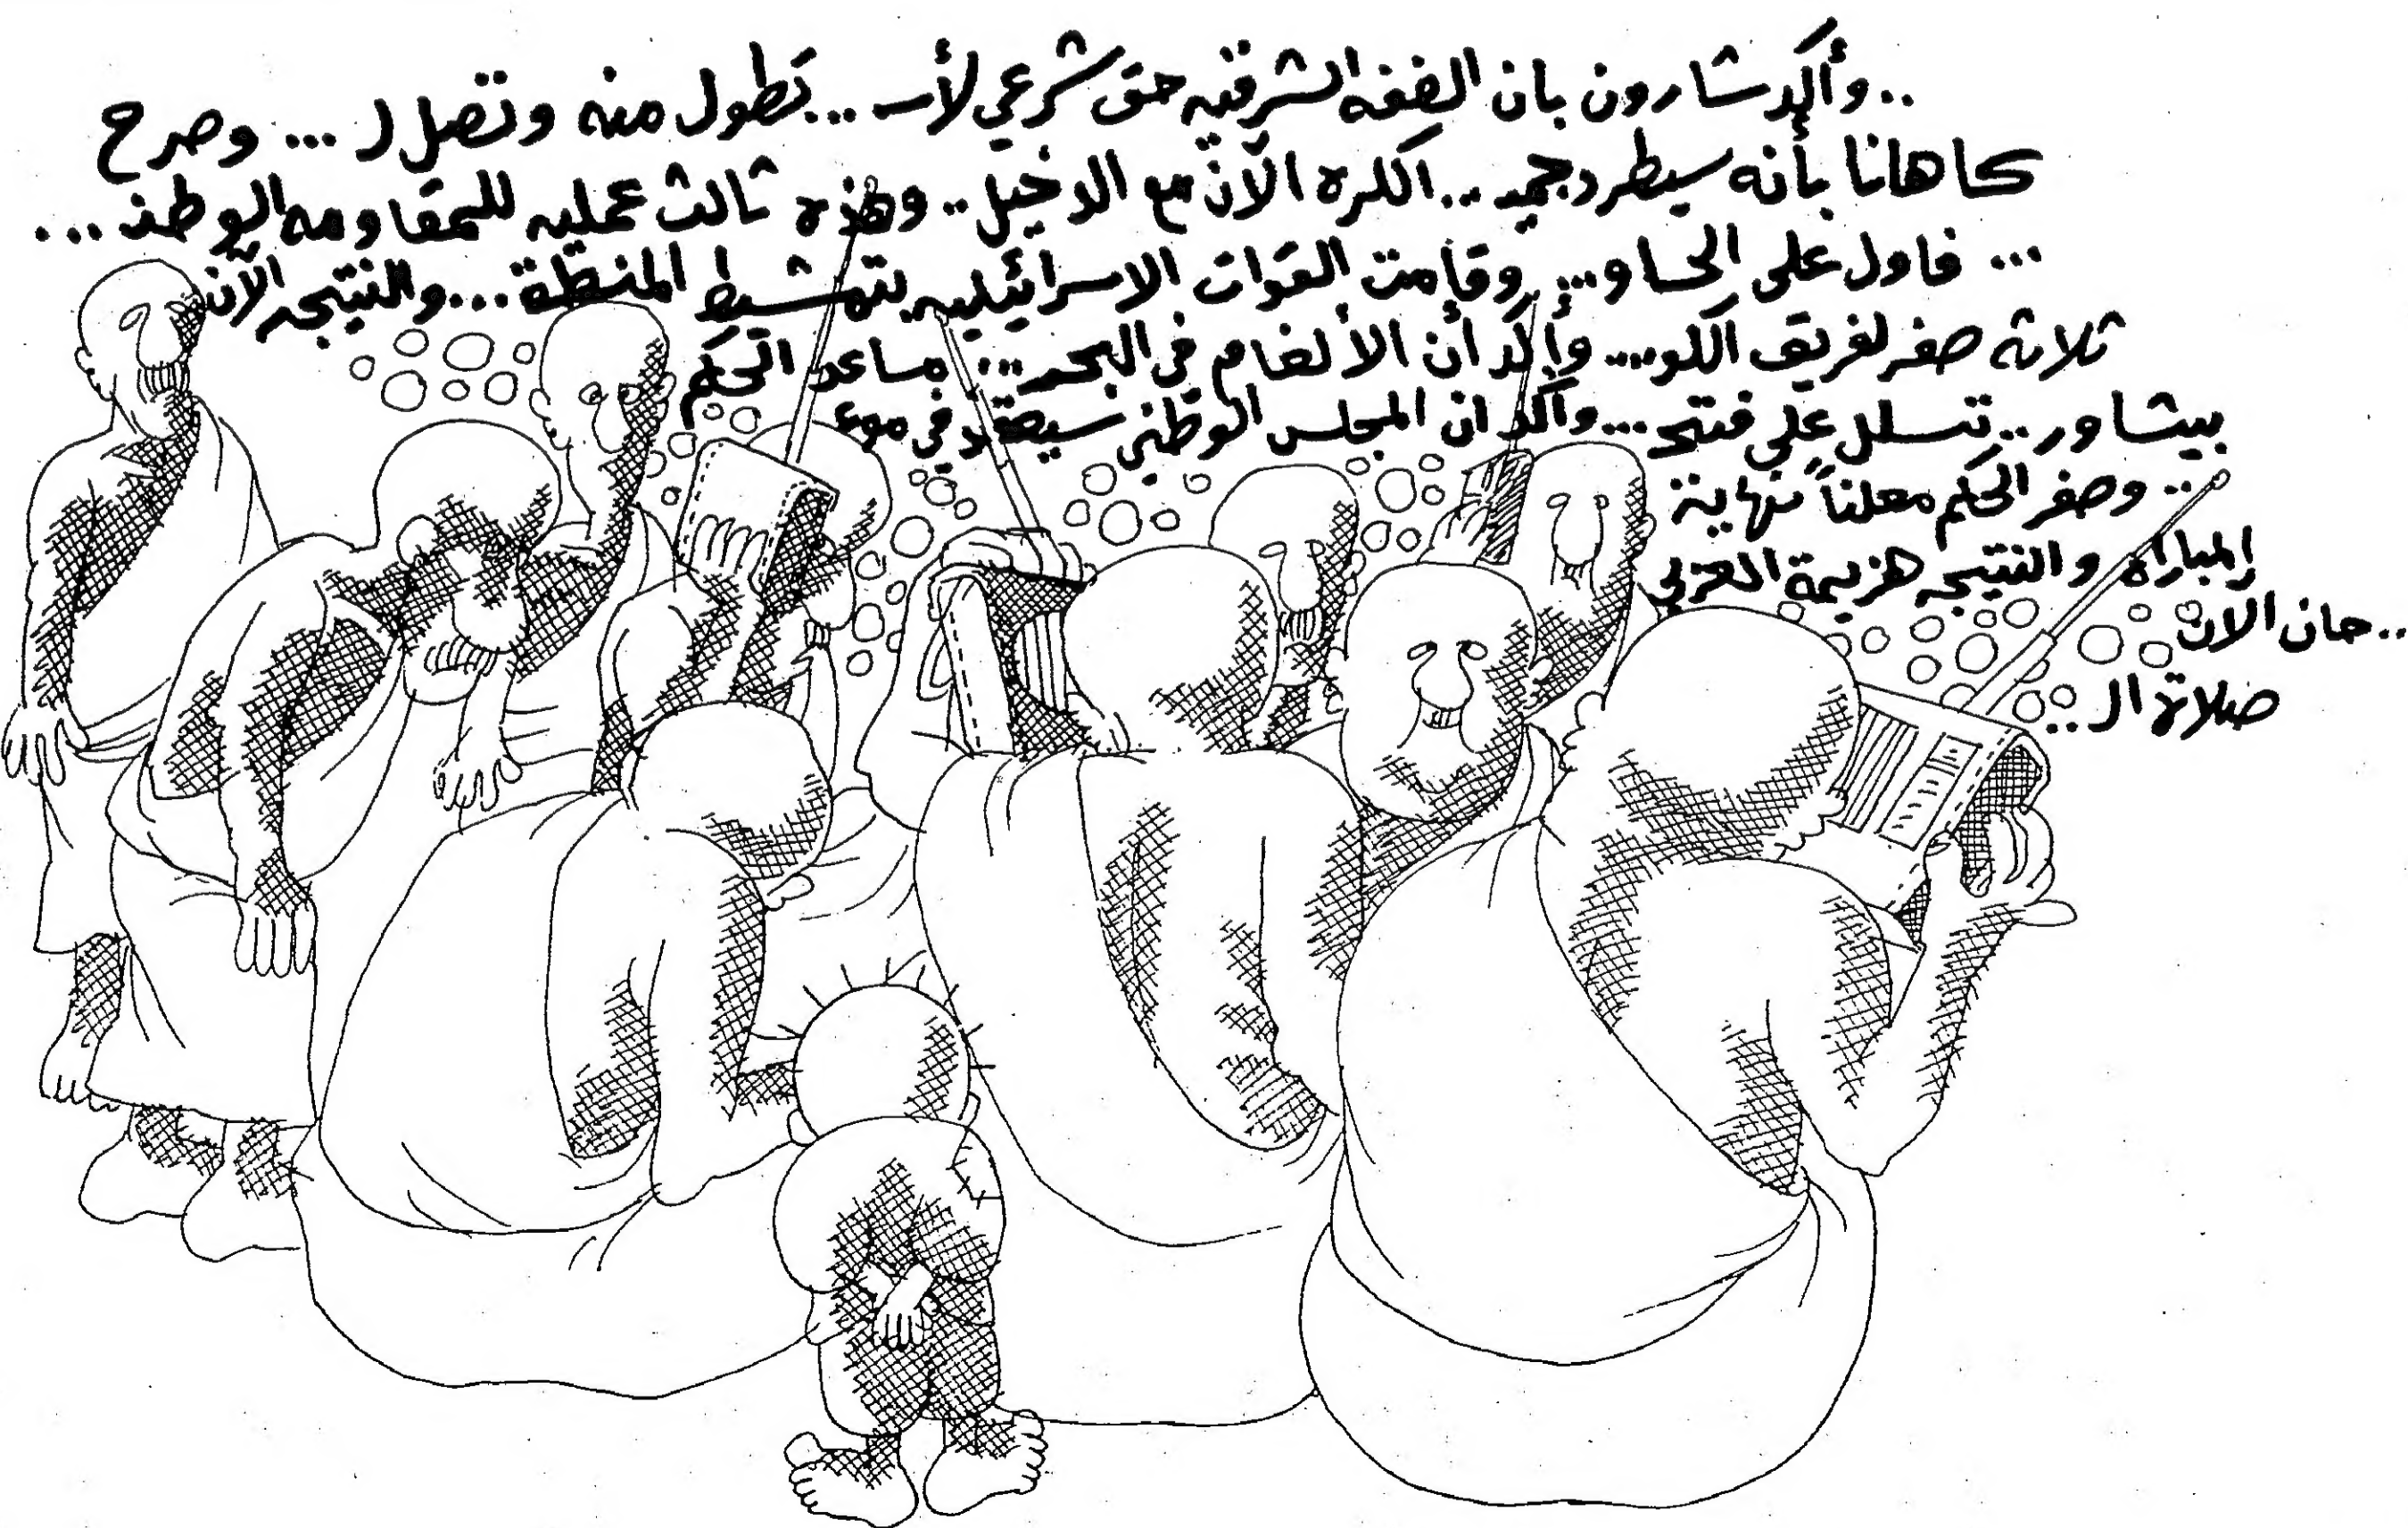 ..وأكد شارون بان الضفه الشرقيه حق شرعي لأسـ...تطول منه وتصل لـ ... وصرح
كاهانا بأنه سيطرد جميـ...الكرة الآن مع الدخيل..وهذه ثالث عمليه للمقاومه الوطنـ...
... فاول على الحاو... وقامت القوات الاسرائيليه بتمشيط المنطقة...والنتيجه الآن
ثلاثه صفر لفريق الكو...وأكد أن الألغام في البحر... مساعد الحكم
بيشاور..تسلل على فتحـ...وأكد ان المجلس الوطني سيعقد في موعـ
.. وصفر الحكم معلناً نهاية
المباراه والنتيجه هزيمة العربي
..حان الان
صلاة الـ..